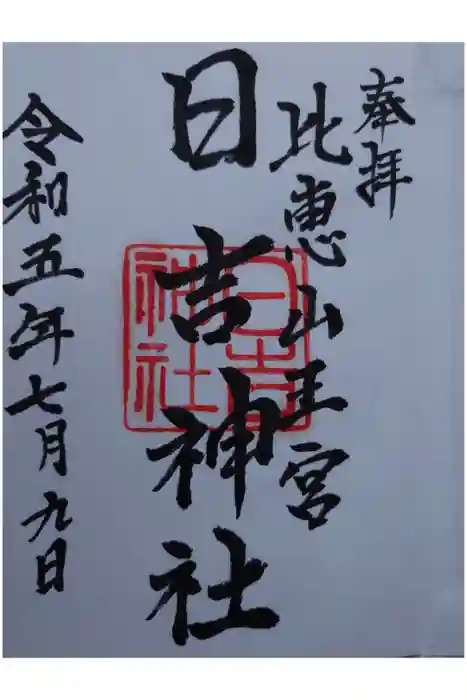 奉拝
比恵山王宮
日吉神社
日吉神社
令和五年七月九日